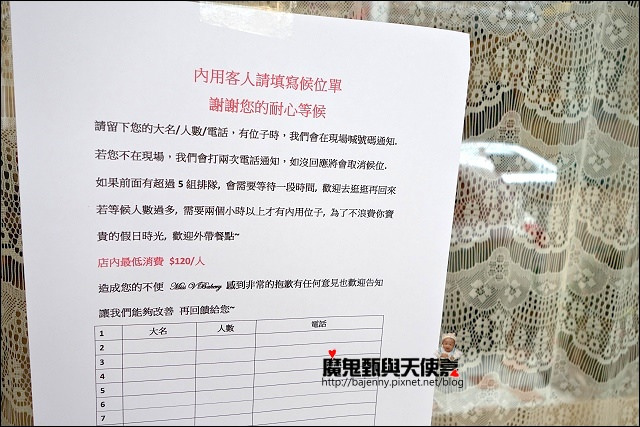 內用客人請填寫候位單
謝謝您的耐心等候
請留下您的大名/人數/電話，有位子時，我們會在現場喊號碼通知.
若您不在現場，我們會打兩次電話通知，如沒回應將會取消候位.
如果前面有超過 5 組排隊, 會需要等待一段時間, 歡迎去逛逛再回來
若等候人數過多, 需要兩個小時以上才有內用位子, 為了不浪費你寶
貴的假日時光, 歡迎外帶餐點~
店內最低消費 $120/人
造成您的不便 Miss V Bakery 感到非常的抱歉有任何意見也歡迎告知
讓我們能夠改善 再回饋給您~
1 大名 人數 電話
2
3
4
5
6
7
魔鬼甄與天使嘉
http://bajenny.pixnet.net/blog